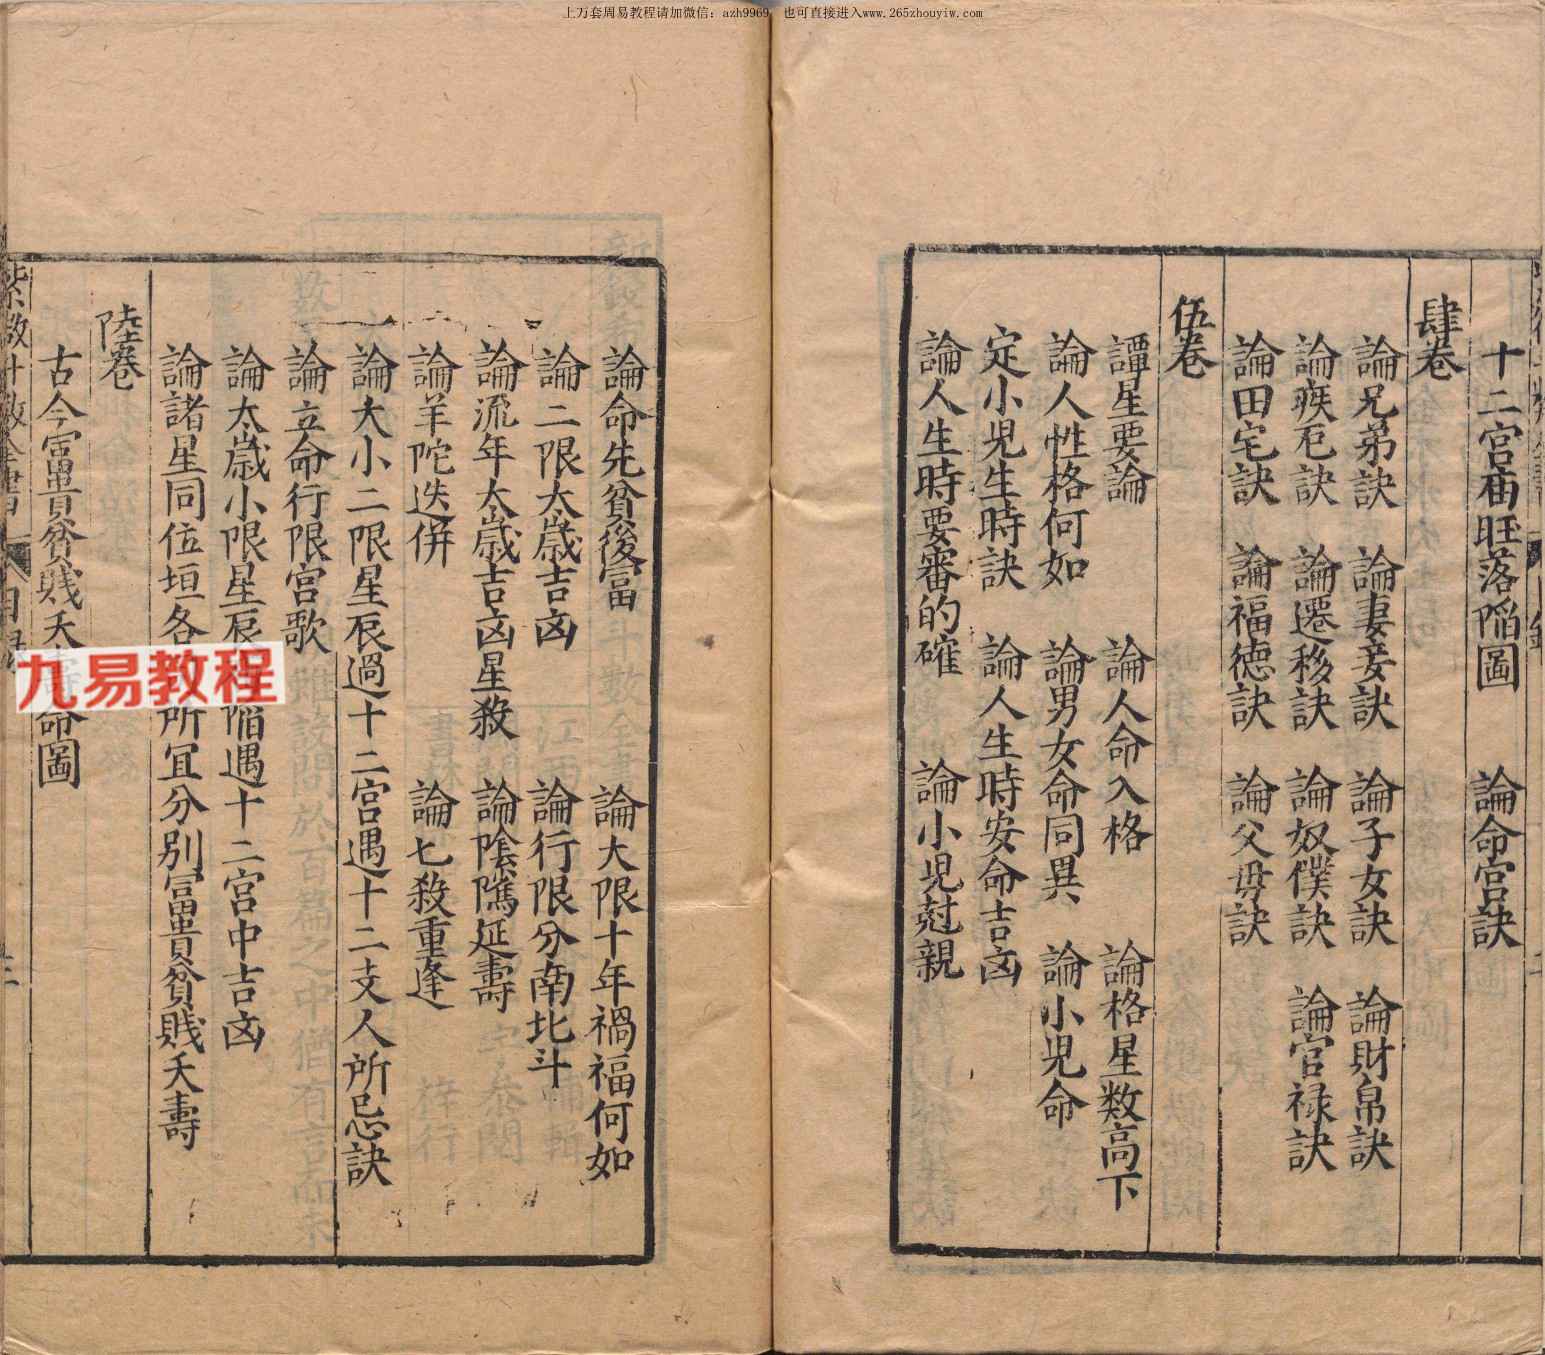 上万套周易教程请加微信：azh9969，也可直接进入www.265zhouyiw.com
十二宮庙旺落陷圖　論命宮訣
肆卷
論兄弟訣　論妻妾訣　論子女訣　論財帛訣
論疾厄訣　論遷移訣　論奴僕訣　論官禄訣
論田宅訣　論福德訣　論父母訣
伍卷
譚星要論　論人命入格　論格星数高下
論人性格何如　論男女命同異　論小児命
定小児生時訣　論人生時安命吉凶
論人生時要審的確　論小児尅親
論命先貧後富　論大限十年禍福何如
論二限太歲吉凶　論行限分南北斗
論流年太歲吉凶星殺　論陰隲延壽
論羊陀迭併　論七殺重逢
論大小二限星辰過十二宮遇十二支人所忌訣
論立命行限宮歌
論太歲小限星辰陷遇十二宮中吉凶
論諸星同位垣各所宜分別富貴貧賤夭壽
陸卷
古今富貴貧賤夭壽命圖
紫微斗数全書　目錄　三
九易教程